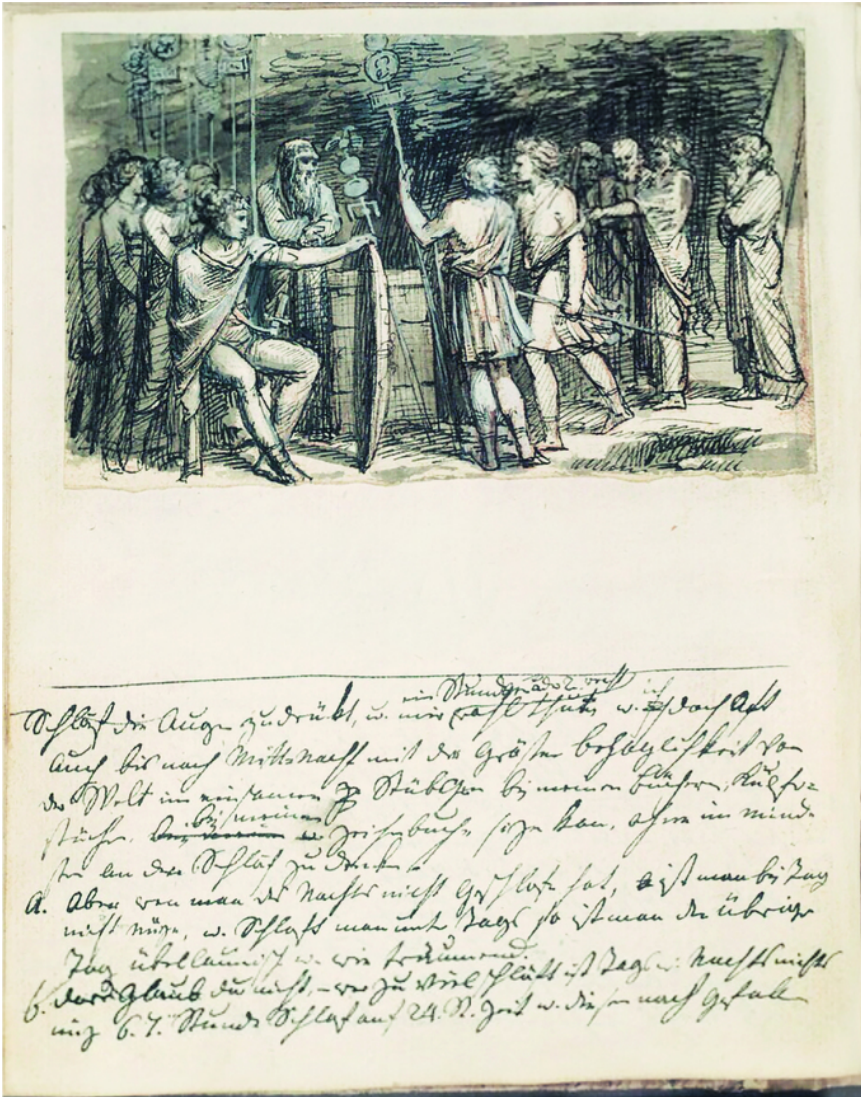 ein Stund oder 2. recht
Schlaf die Augen zudrükt, u. mir wohl thut, u. ich doch oft
auch bis nach Mitternacht mit der grösten behaglichkeit von
der Welt im einsamen Stübchen bey meinen büchern,
bey meinem Zeichenbuche sizen kan, ohne im minde-
sten an den Schlaf zu denken.
A. Aber wen man des Nachts nicht geschlafen hat, ist man bey Tag
nicht nüze, u. Schlaft man unter Tags so ist man den übrigen
Tag übellaunisch u. wie träumend.
b. das Glaub du nicht, – wer zu viel schlaft ist Tags u. Nachts nichts
nuz 6. 7. Stunde Schlaf auf 24. St. Zeit u. diese nach gefallen